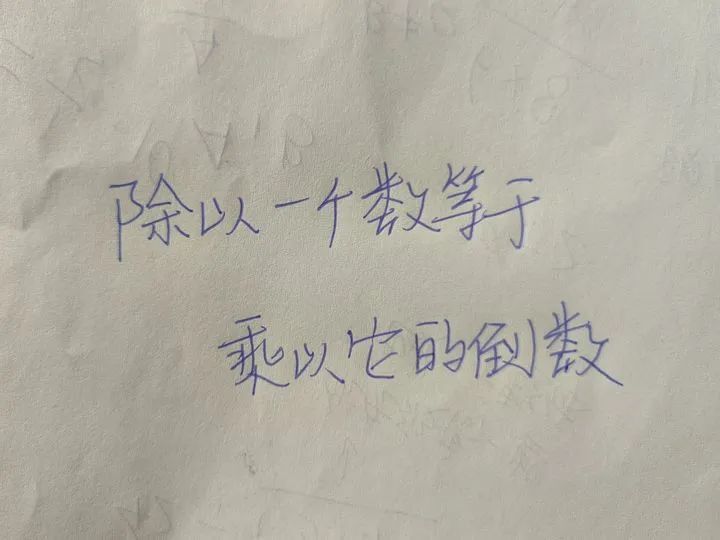 除以一个数等于
乘以它的倒数